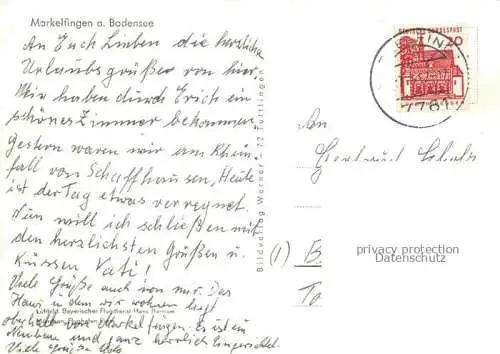 Markelfingen a. Bodensee
An Euch Lieben die herzlichen
Urlaubsgrüße von hier.
Wir haben durch Erich ein
schönes Zimmer bekommen
Gestern waren wir am Rhein
fall von Schaffhausen, Heute
ist der Tag etwas verregnet.
Nun will ich schließen mit
den herzlichsten Grüßen u.
Küssen Vati!
Viele Grüße auch von mir. Das
Haus in dem wir wohnen liegt
oberhalb von Markelfingen. Es ist ein
Neubau und ganz herrlich eingerichtet
Viele Grüße
Luftbild Bayerischer Flugdienst Hans Bertram
München Flughafen
Bildverlag Werner 72 Tuttlingen
DEUTSCHE BUNDESPOST
20
An
Gertrud
(1) B
privacy protection
Datenschutz